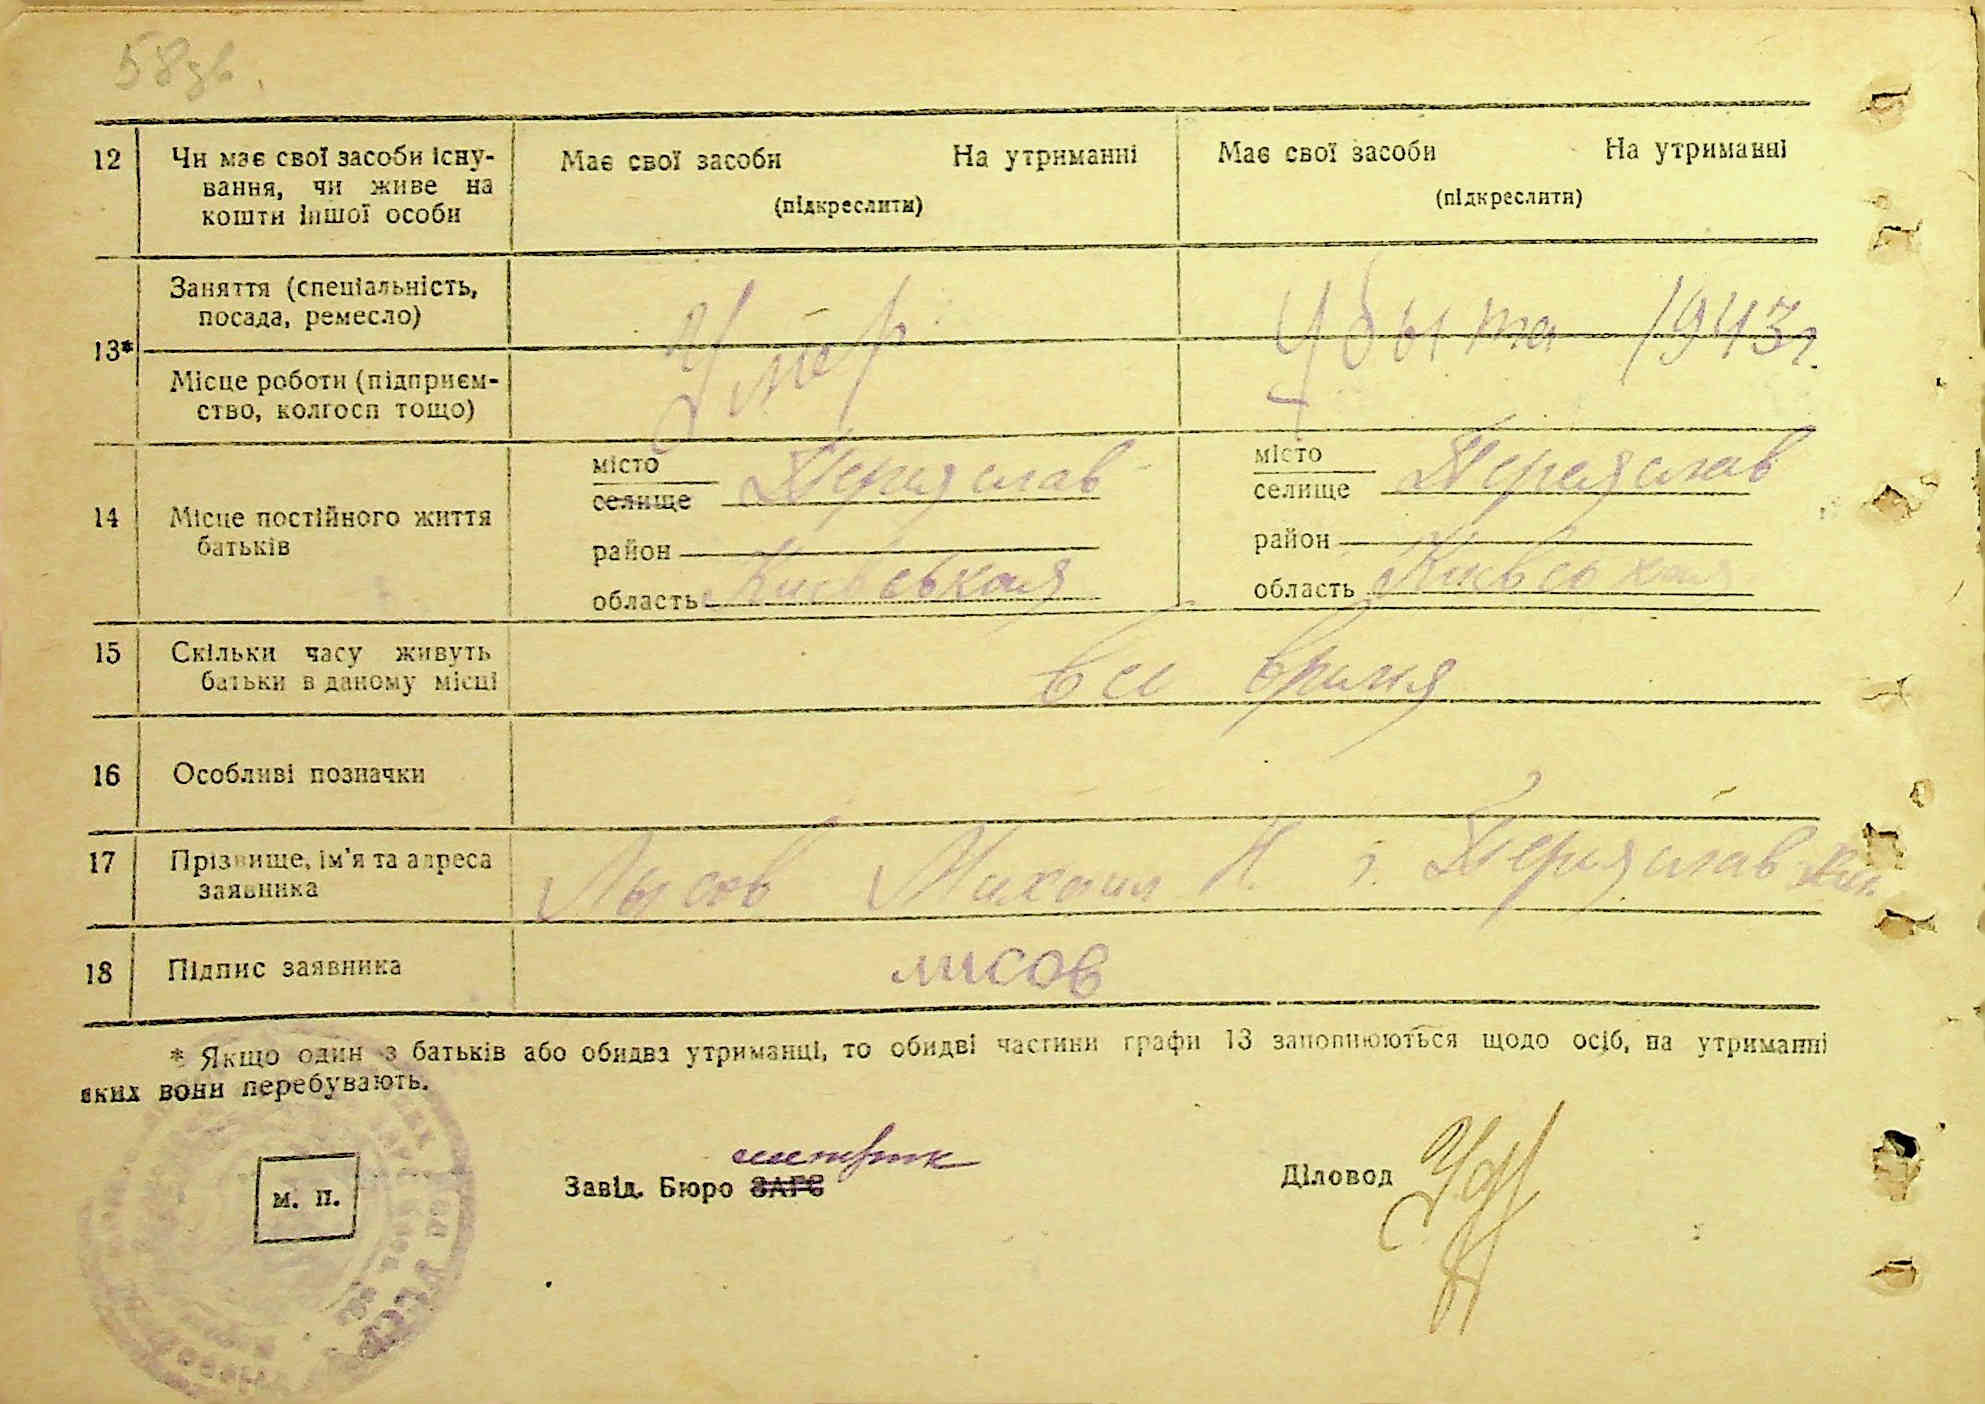 58зв.
12 Чи має свої засоби існу-
вання, чи живе на
кошти іншої особи
Має свої засоби На утриманні
(підкреслити)
Має свої засоби На утриманні
(підкреслити)
13*
Заняття (спеціальність,
посада, ремесло)
Умер
Убыта 1943г.
Місце роботи (підприєм-
ство, колгосп тощо)
14 Місце постійного життя
батьків
місто
селище Переяслав
район
область Киевськая
місто
селище Переяслав
район
область Киевськая
15 Скільки часу живуть
батьки в даному місці
все время
16 Особливі позначки
17 Прізвище, ім'я та адреса
заявника
Лысов Михаил И. г. Переяслав
18 Підпис заявника
лисов
* Якщо один з батьків або обидва утриманці, то обидві частини графи 13 заповнюються щодо осіб, на утриманні
яких вони перебувають.
м. п.
Завід. Бюро ЗАГС
Діловод